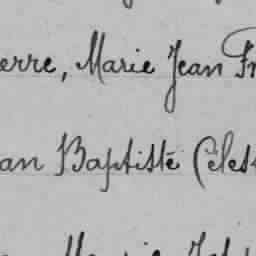 erre, Marie Jean Fr
an Baptiste Célest